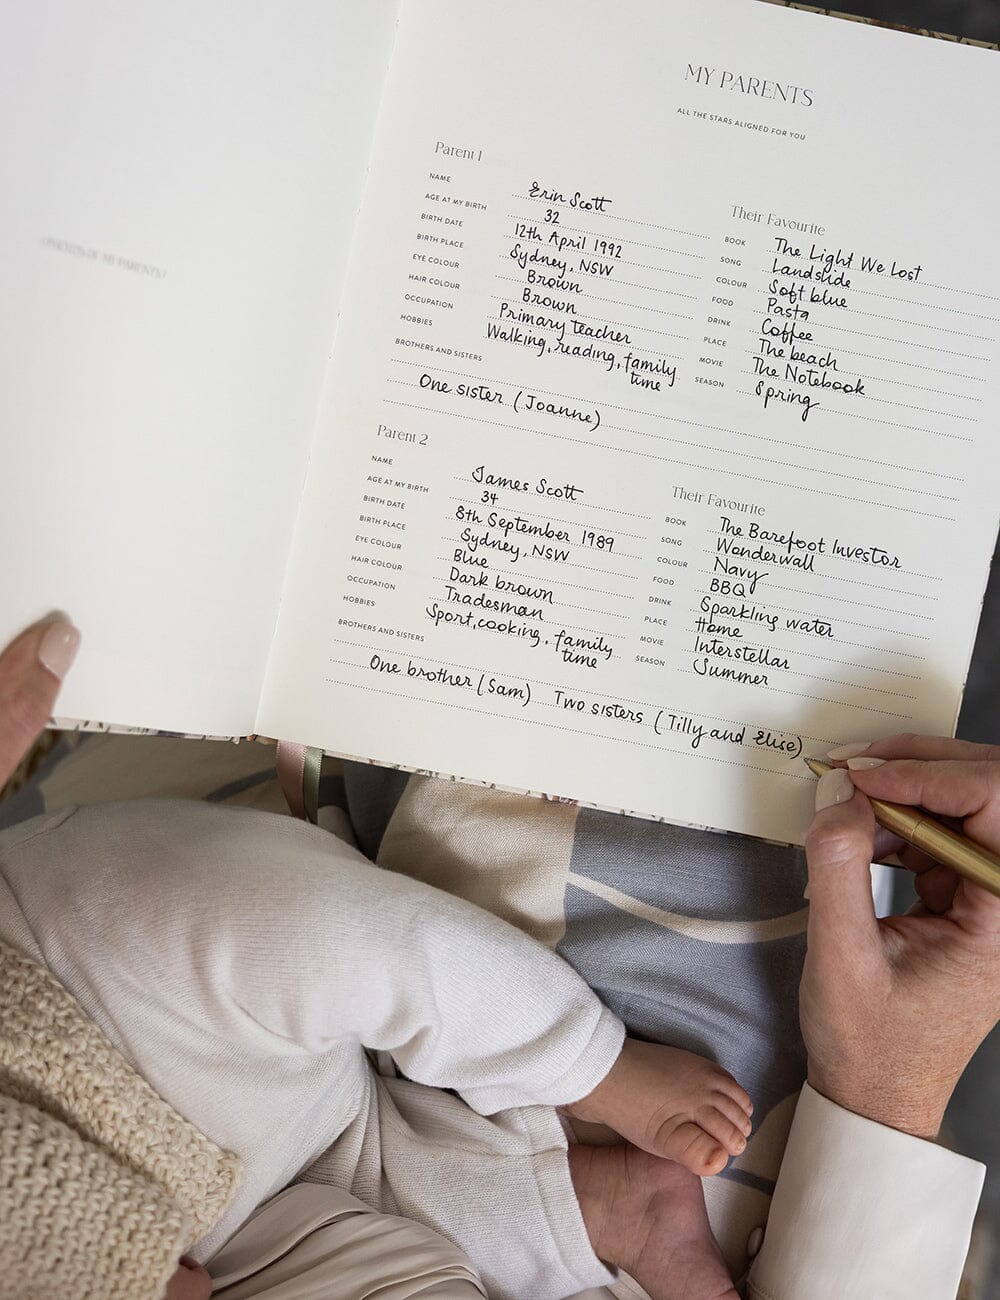 MY PARENTS
ALL THE STARS ALIGNED FOR YOU
Parent 1
NAME Erin Scott
AGE AT MY BIRTH 32
BIRTH DATE 12th April 1992
BIRTH PLACE Sydney, NSW
EYE COLOUR Brown
HAIR COLOUR Brown
OCCUPATION Primary teacher
HOBBIES Walking, reading, family
time
BROTHERS AND SISTERS
One sister (Joanne)
Their Favourite
BOOK The Light We Lost
SONG Landslide
COLOUR Soft blue
FOOD Pasta
DRINK Coffee
PLACE The beach
MOVIE The Notebook
SEASON Spring
Parent 2
NAME James Scott
AGE AT MY BIRTH 34
BIRTH DATE 8th September 1989
BIRTH PLACE Sydney, NSW
EYE COLOUR Blue
HAIR COLOUR Dark brown
OCCUPATION Tradesman
HOBBIES Sport, cooking, family
time
BROTHERS AND SISTERS
One brother (Sam) Two sisters (Tilly and Elise)
Their Favourite
BOOK The Barefoot Investor
SONG Wonderwall
COLOUR Navy
FOOD BBQ
DRINK Sparkling water
PLACE Home
MOVIE Interstellar
SEASON Summer
(PHOTOS OF MY PARENTS)